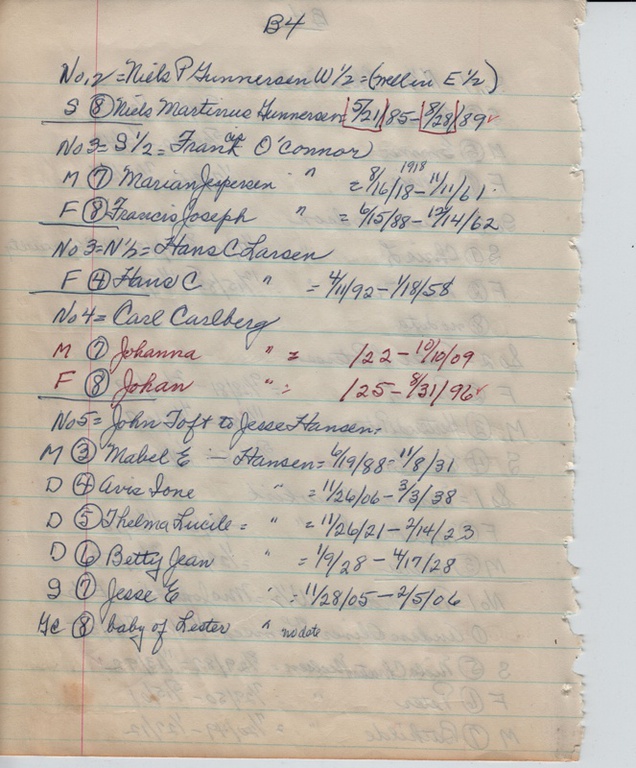 B4
No.2 = Niels P Gunnersen W 1/2 = (nell in E 1/2)
S ⑧ Niels Martinus Gunnersen 5/21/85 - 8/28/89
No 3 = S 1/2 = Frank O'Connor
M ⑦ Marian Jespersen " = 8/16/18 1918 - 11/11/61
F ⑧ Francis Joseph " = 6/15/88 - 12/14/62
No 3 = N 1/2 = Hans C Larsen
F ④ Hans C " = 4/11/92 - 1/18/58
No 4 = Carl Carlberg
M ⑦ Johanna " = /22 - 10/10/09
F ⑧ Johan " = /25 - 8/31/96
No 5 = John Toft to Jesse Hansen =
M ③ Mabel E - Hansen = 6/19/88 - 11/8/31
D ④ Avis Ione " = 11/26/06 - 3/3/38
D ⑤ Thelma Lucile = " = 11/26/21 - 2/14/23
D ⑥ Betty Jean " = 1/9/28 - 4/17/28
S ⑦ Jesse E " = 11/28/05 - 2/5/06
Gc ⑧ baby of Lester " no date